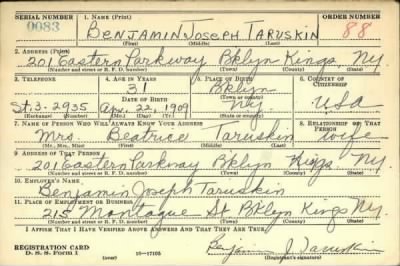 SERIAL NUMBER 1. NAME (Print) ORDER NUMBER
0083 BENJAMIN JOSEPH TARUSKIN 88
(First) (Middle) (Last)
2. ADDRESS (Print)
201 Eastern Parkway Bklyn Kings, NY.
(Number and street or R. F. D. number) (Town) (County) (State)
3. TELEPHONE 4. AGE IN YEARS 5. PLACE OF BIRTH 6. COUNTRY OF CITIZENSHIP
31 Bklyn
DATE OF BIRTH (Town or county)
St. 3-2935 Apr. 22, 1909 NY. USA
(Exchange) (Number) (Mo.) (Day) (Yr.) (State or country)
7. NAME OF PERSON WHO WILL ALWAYS KNOW YOUR ADDRESS 8. RELATIONSHIP OF THAT PERSON
Mrs. Beatrice Taruskin wife
(Mr., Mrs., Miss) (First) (Middle) (Last)
9. ADDRESS OF THAT PERSON
201 Eastern Parkway Bklyn Kings NY.
(Number and street or R. F. D. number) (Town) (County) (State)
10. EMPLOYER'S NAME
Benjamin Joseph Taruskin
11. PLACE OF EMPLOYMENT OR BUSINESS
215 Montague St Bklyn Kings NY.
(Number and street or R. F. D. number) (Town) (County) (State)
I AFFIRM THAT I HAVE VERIFIED ABOVE ANSWERS AND THAT THEY ARE TRUE.
REGISTRATION CARD
D. S. S. Form 1 16-17105
Benjamin J. Taruskin
(Registrant's signature)